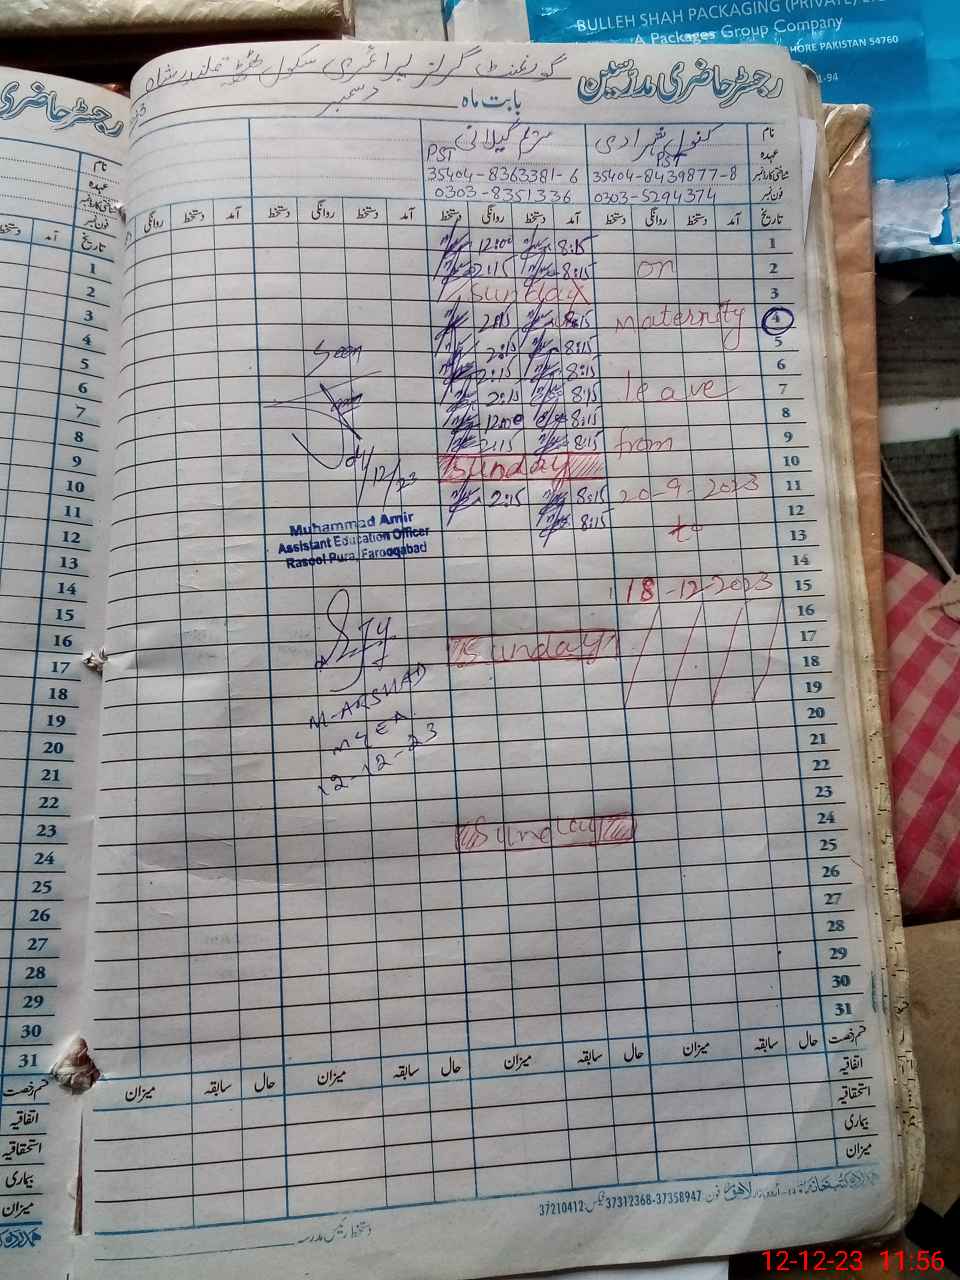 BULLEH SHAH PACKAGING (PRIVATE)
A Packages Group Company
LAHORE PAKISTAN 54760
رجسٹر حاضری مدرسین
گورنمنٹ گرلز پرائمری سکول
بابت ماہ دسمبر
نام
عہدہ PST PST
شناختی کارڈ نمبر 35404-8439877-8 35404-8363381-6
فون نمبر 0303-5294374 0303-8351336
تاریخ آمد دستخط روانگی دستخط آمد دستخط روانگی دستخط آمد دستخط روانگی دستخط آمد دستخط روانگی
1 8:15 12:00
2 on 8:15 2:15
3 Sunday
4 maternity 8:15 2:15
5 8:15 2:15
6 8:15 2:15
7 leave 8:15 2:15
8 8:15 12:00
9 from 8:15 2:15
10 Sunday
11 20-9-2023 8:15 2:15
12 8:15
13 to
14
15 18-12-2023
16
17 Sunday
18
19
20
21
22
23
24 Sunday
25
26
27
28
29
30
31
Seen
Muhammad Amir
Assistant Education Officer
Rasool Pura, Farooqabad
M-ARSHAD
MEA
12-12-23
قسم رخصت حال سابقہ میزان حال سابقہ میزان حال سابقہ میزان
اتفاقیہ
استحقاقیہ
بیماری
میزان
37210412 فیکس: 37312368-37358947 فون
دستخط رئیس مدرسہ
رجسٹر حاضری
نام
عہدہ
شناختی کارڈ نمبر
فون نمبر
تاریخ آمد دستخط
1
2
3
4
5
6
7
8
9
10
11
12
13
14
15
16
17
18
19
20
21
22
23
24
25
26
27
28
29
30
31
قسم رخصت
اتفاقیہ
استحقاقیہ
بیماری
میزان
12-12-23 11:56